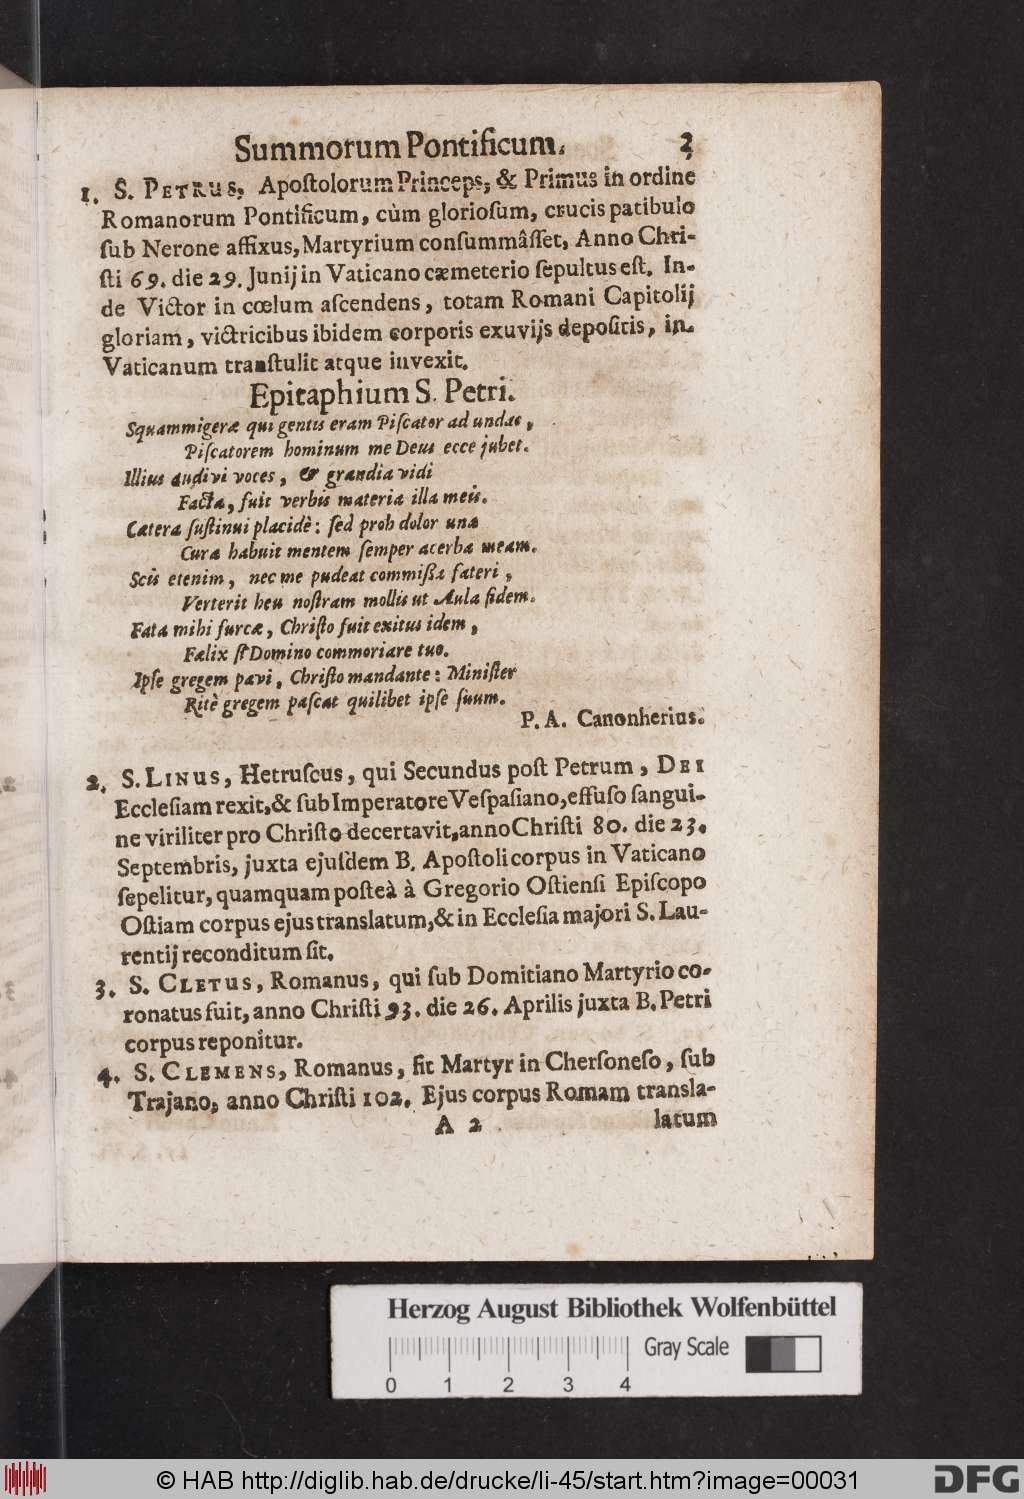 Summorum Pontificum. 3
1. S. PETRUS, Apoſtolorum Princeps, & Primus in ordine
Romanorum Pontificum, cùm glorioſum, crucis patibulo
ſub Nerone affixus, Martyrium conſummâſſet, Anno Chri-
ſti 69. die 29. Junij in Vaticano cæmeterio ſepultus eſt. In-
de Victor in cœlum aſcendens, totam Romani Capitolij
gloriam, victricibus ibidem corporis exuvijs depoſitis, in
Vaticanum tranſtulit atque invexit.
Epitaphium S. Petri.
Squammigeræ qui gentis eram Piſcator ad undas,
Piſcatorem hominum me Deus ecce jubet.
Illius audivi voces, & grandia vidi
Facta, fuit verbis materia illa meis.
Cætera ſuſtinui placidè: ſed proh dolor una
Cura habuit mentem ſemper acerba meam.
Scis etenim, nec me pudeat commißa fateri,
Verterit heu noſtram mollis ut Aula fidem.
Fata mihi furcæ, Chriſto fuit exitus idem,
Fælix ſi Domino commoriare tuo.
Ipſe gregem pavi, Chriſto mandante: Miniſter
Ritè gregem paſcat quilibet ipſe ſuum.
P. A. Canonherius.
2. S. LINUS, Hetruſcus, qui Secundus poſt Petrum, DEI
Eccleſiam rexit, & ſub Imperatore Veſpaſiano, effuſo ſangui-
ne viriliter pro Chriſto decertavit, anno Chriſti 80. die 23.
Septembris, juxta ejuſdem B. Apoſtoli corpus in Vaticano
ſepelitur, quamquam poſteà à Gregorio Oſtienſi Epiſcopo
Oſtiam corpus ejus translatum, & in Eccleſia majori S. Lau-
rentij reconditum ſit.
3. S. CLETUS, Romanus, qui ſub Domitiano Martyrio co-
ronatus fuit, anno Chriſti 93. die 26. Aprilis juxta B. Petri
corpus reponitur.
4. S. CLEMENS, Romanus, fit Martyr in Cherſoneſo, ſub
Trajano, anno Chriſti 102. Ejus corpus Romam transla-
A 2 latum
Herzog August Bibliothek Wolfenbüttel
Gray Scale
0 1 2 3 4
© HAB http://diglib.hab.de/drucke/li-45/start.htm?image=00031
DFG